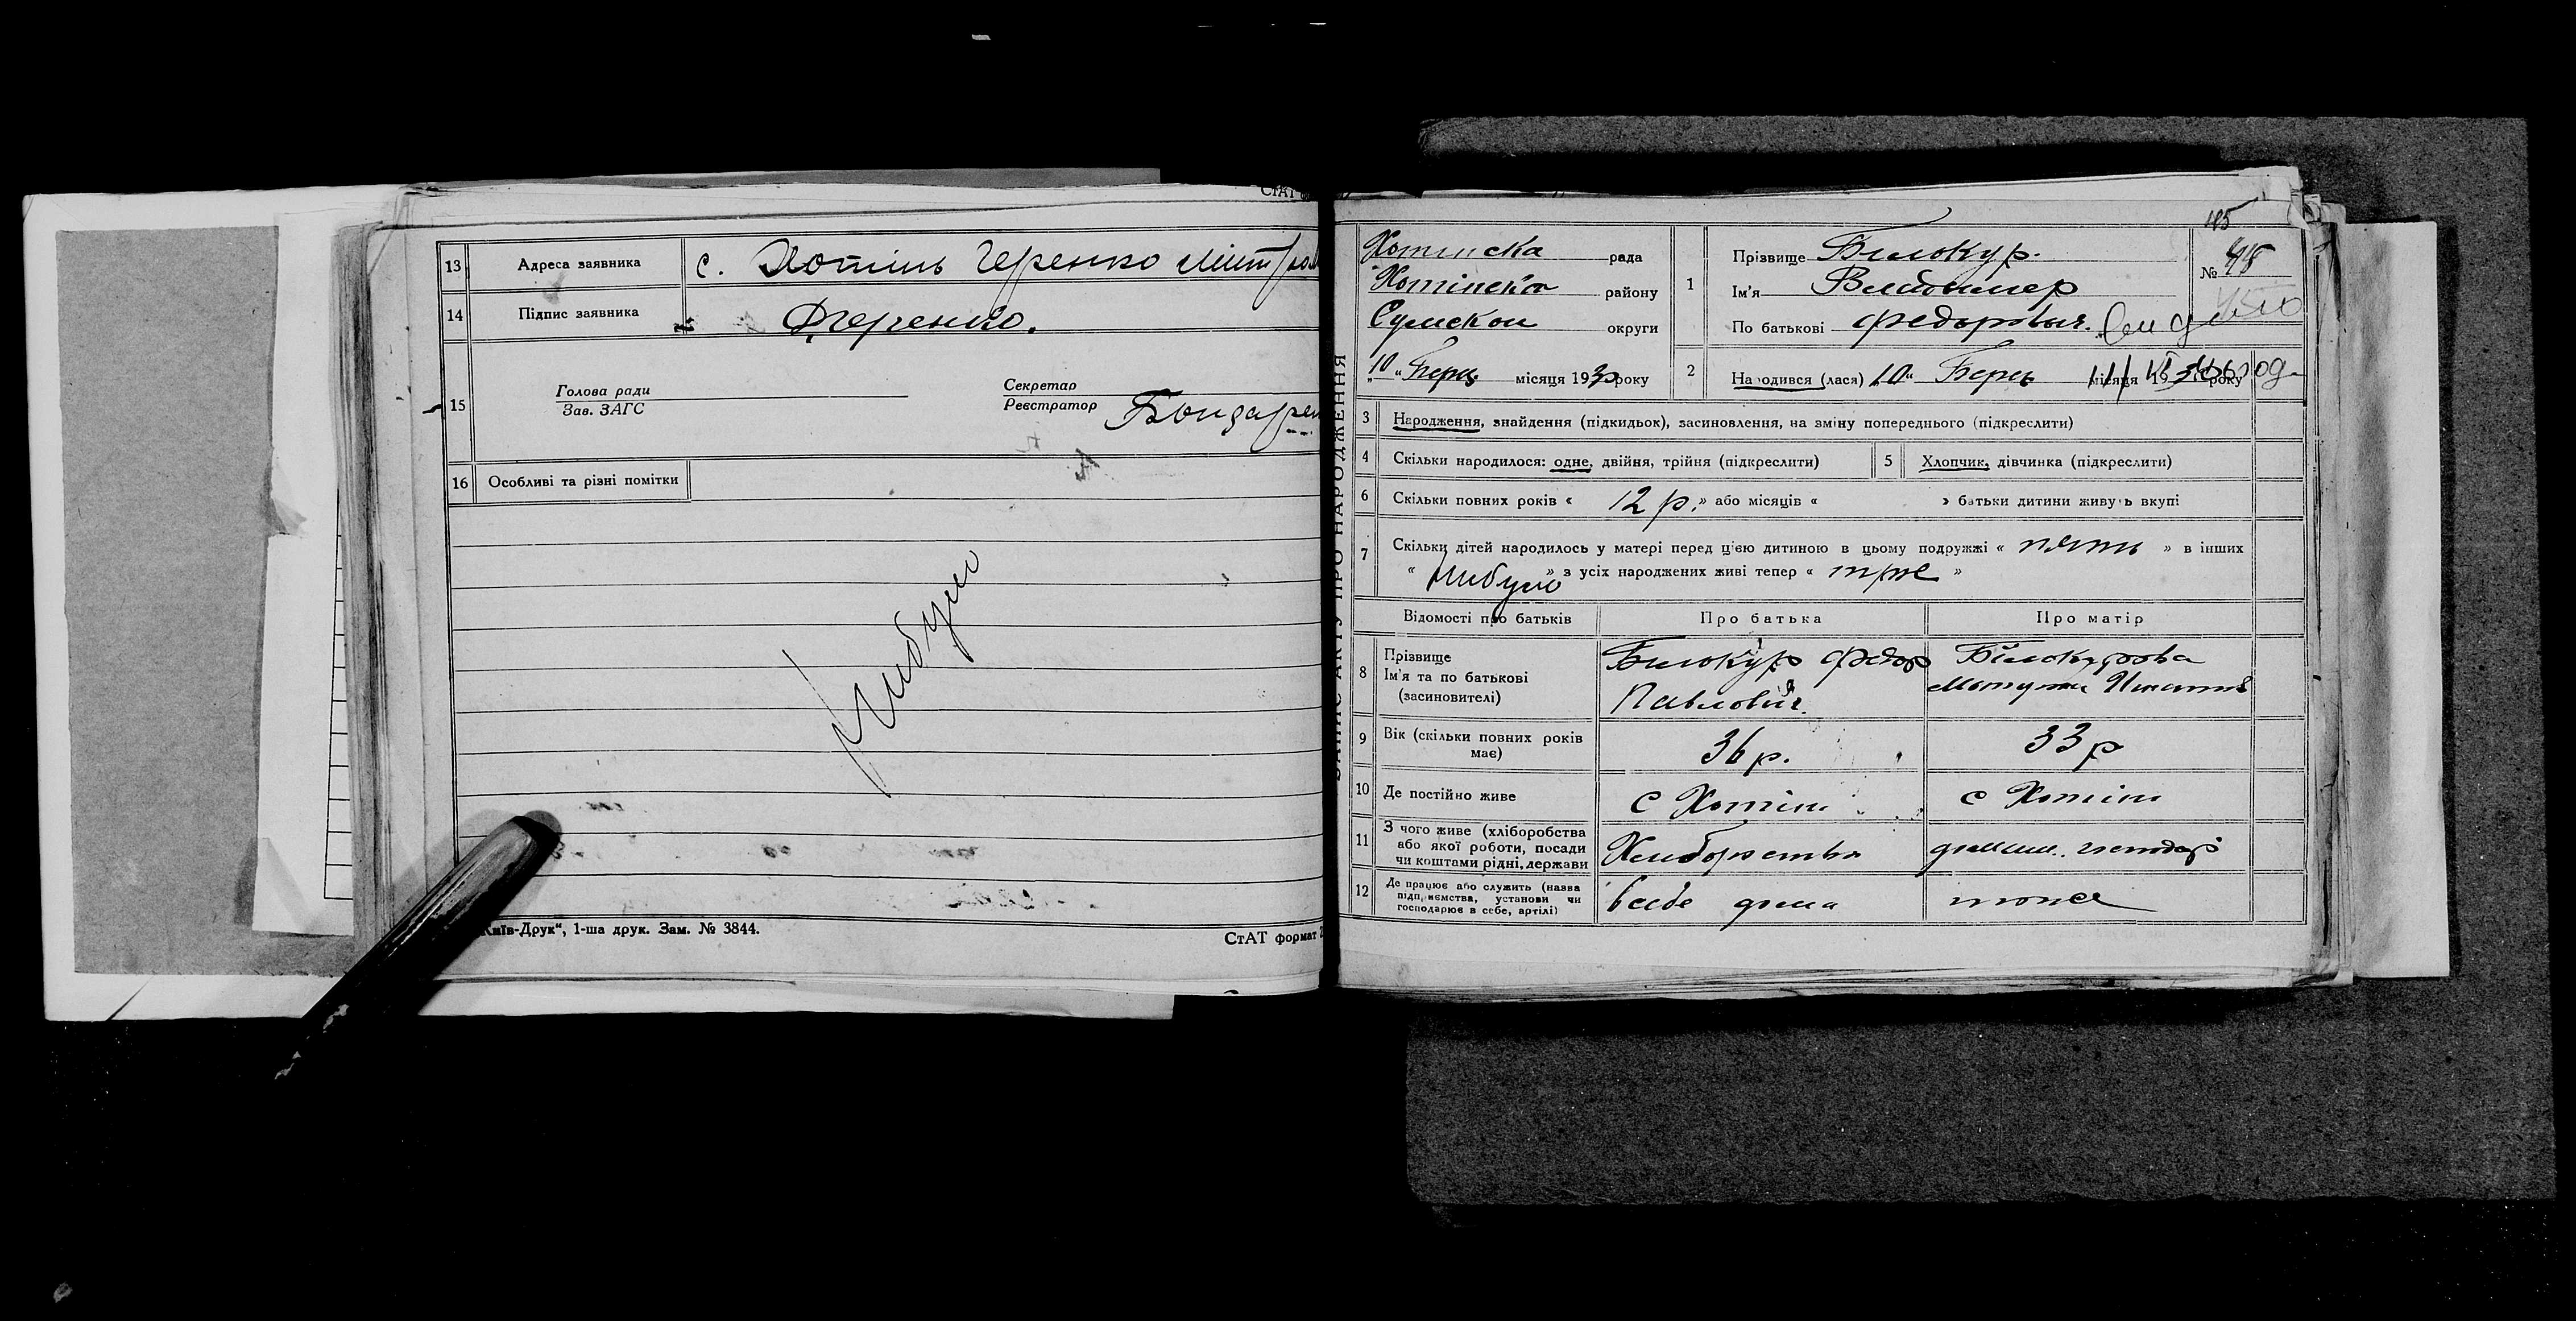 СтАТ
13 Адреса заявника с. Хотінь Черенко Митроф
14 Підпис заявника Черенко.
Голова ради
Зав. ЗАГС
Секретар
Реєстратор Бондарен
15
16 Особливі та різні помітки
Нибуло
Київ-Друк“, 1-ша друк. Зам. № 3844.
СтАТ формат
ЗАПИС АКТУ ПРО НАРОДЖЕННЯ
185
Хотинска рада
Хотінска району
Сумскои округи
„10“ Берез. місяця 1930 року
1 Прізвище Билокур.
Ім'я Владимер
По батькові Федорович.
№ 98
2 Народився (лася) „10“ Берез місяця 19 року
3 Народження, знайдення (підкидьок), засиновлення, на зміну попереднього (підкреслити)
4 Скільки народилося: одне, двійня, трійня (підкреслити) 5 Хлопчик, дівчинка (підкреслити)
6 Скільки повних років « 12 р. » або місяців « » батьки дитини живуть вкупі
7 Скільки дітей народилось у матері перед цією дитиною в цьому подружжі « пять » в інших
« Нибуло » з усіх народжених живі тепер « трое »
Відомості про батьків Про батька Про матір
8 Прізвище
Ім'я та по батькові
(засиновителі)
Билокур Федор
Павлович.
Білокурова
9 Вік (скільки повних років має) 36 р. 33 р
10 Де постійно живе с Хотінь с Хотінь
11 З чого живе (хліборобства
або якої роботи, посади
чи коштами рідні, держави
Хлиборобства домаш. господар
12 Де працює або служить (назва
підприємства, установи чи
господарює в себе, артілі)
всебе дома тоже